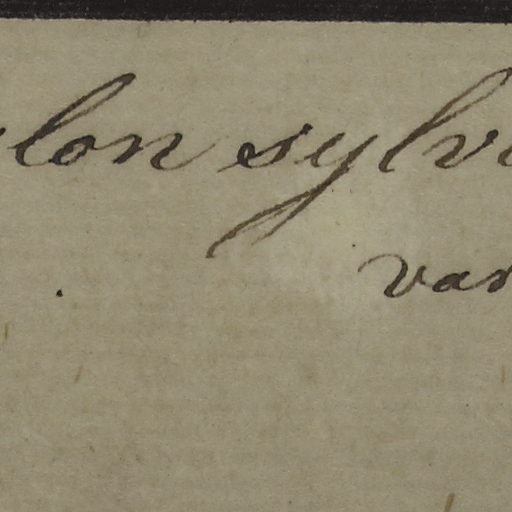 lon sylv
var